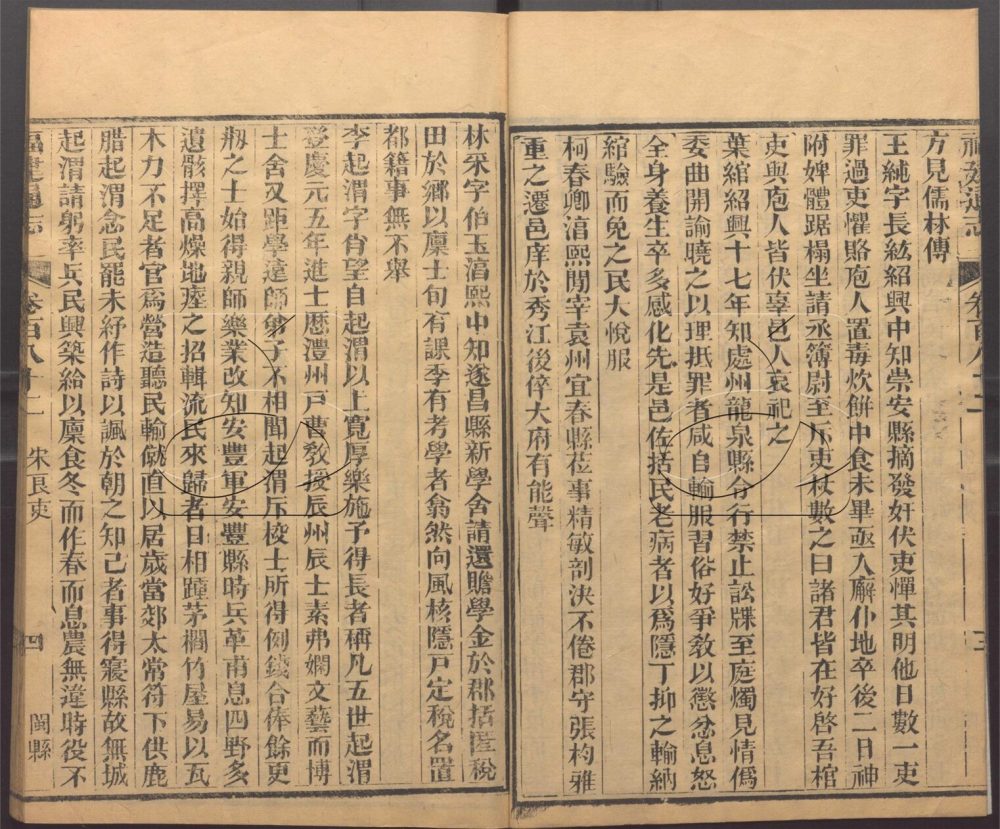 方見儒林傳
王純字長紘紹興中知崇安縣摘發奸伏吏憚其明他日數一吏
罪過吏懼賂庖人置毒炊餅中食未畢亟入廨仆地卒後二日神
附婢體踞榻坐請丞簿尉至斥吏杖數之曰諸君皆在好啓吾棺
吏與庖人皆伏辜邑人哀祀之
葉綰紹興十七年知處州龍泉縣令行禁止訟牒至庭燭見情僞
委曲開諭曉之以理抵罪者咸自輸服習俗好爭敎以懲忿息怒
全身養生卒多感化先是邑佐括民老病者以爲隱丁抑之輸納
綰驗而免之民大悅服
柯春卿淳熙閒宰袁州宜春縣莅事精敏剖決不倦郡守張杓雅
重之遷邑庠於秀江後倅大府有能聲
林采字伯玉淳熙中知遂昌縣新學舍請還贍學金於郡括陞稅
田於鄉以廩士旬有課季有考學者翕然向風核隱戸定稅名置
都籍事無不舉
李起渭字肖望自起渭以上寬厚樂施予得長者稱凡五世起渭
登慶元五年進士歷澧州戸曹敎授辰州辰士素弗嫻文藝而博
士舍又距學遠師弟子不相聞起渭斥校士所得例錢合俸餘更
剏之士始得親師樂業改知安豐軍安豐縣時兵革甫息四野多
遺骸擇高燥地瘞之招輯流民來歸者日相踵茅欄竹屋易以瓦
木力不足者官爲營造聽民輸僦直以居歲當郊太常符下供鹿
腊起渭念民罷未紓作詩以諷於朝之知己者事得寢縣故無城
起渭請躬率兵民興築給以廩食冬而作春而息農無違時役不
福建通志 卷百八十二 宋良吏 四 閩縣